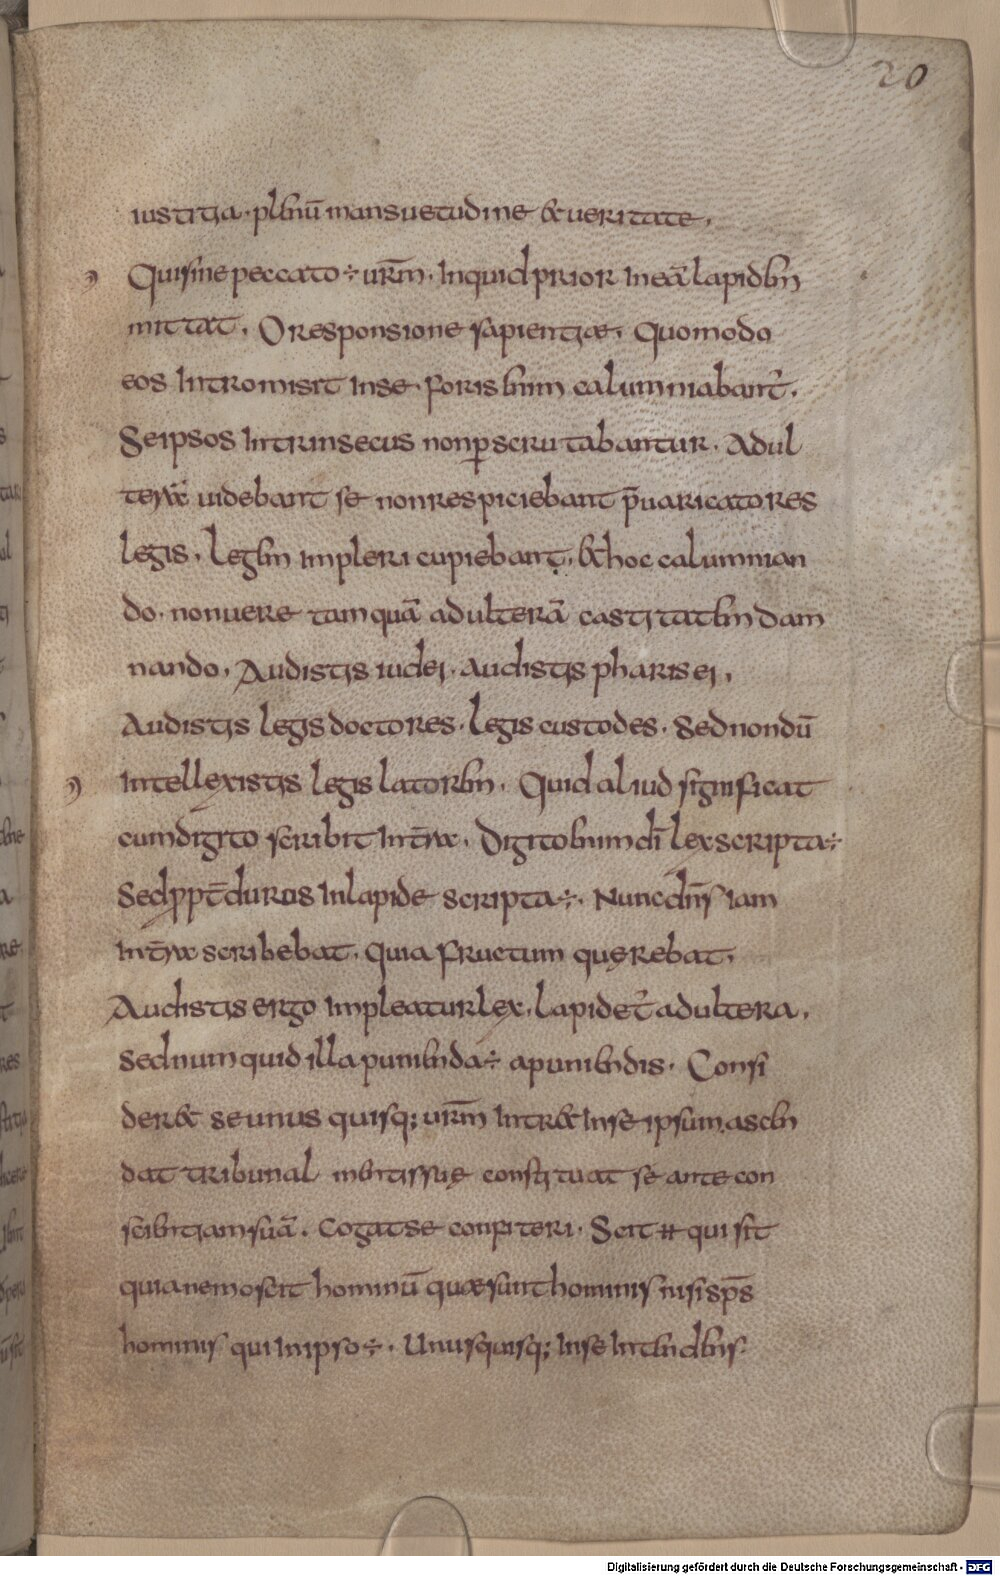 20
iustitia · plenū mansuetudine & ueritate,
Qui sine peccato ÷ urm̄ · inquid prior in eā lapidem
mittat, O responsione sapientiae, Quomodo
eos intromisit in se · foris enim calumniabant᷑,
Se ipsos intrinsecus non ꝑscrutabantur · Adul
terā uidebant se non respiciebant p̄uaricatores
legis, legem impleri cupiebant, & hoc calumnian
do · non uere tam quā adulterā castitatem dam
nando, Audistis iudei · audistis pharisei,
Audistis legis doctores · legis custodes · sed nondū
intellexistis legis latorem, Quid aliud significat
cum digito scribit in terra, Digito enim dī lex scripta ÷
Sed ꝓpt̄ duros in lapide scripta ÷ · Nunc dn̄s iam
in terra scribebat, quia fructum quęrebat,
Audistis ergo impleatur lex, lapidet᷑ adultera,
Sed numquid illa punienda ÷ a puniendis · Consi
der& se unus quisq; urm̄ intr& in se ipsum ascen
dat tribunal mentis suę constituat se ante con
scientiam suā · cogat se confiteri · Scit H qui sit
quia nemo scit hominū quae sunt hominis nisi sp̄s
hominis qui in ipso ÷ · Unusquisq; in se intendens
Digitalisierung gefördert durch die Deutsche Forschungsgemeinschaft - DFG